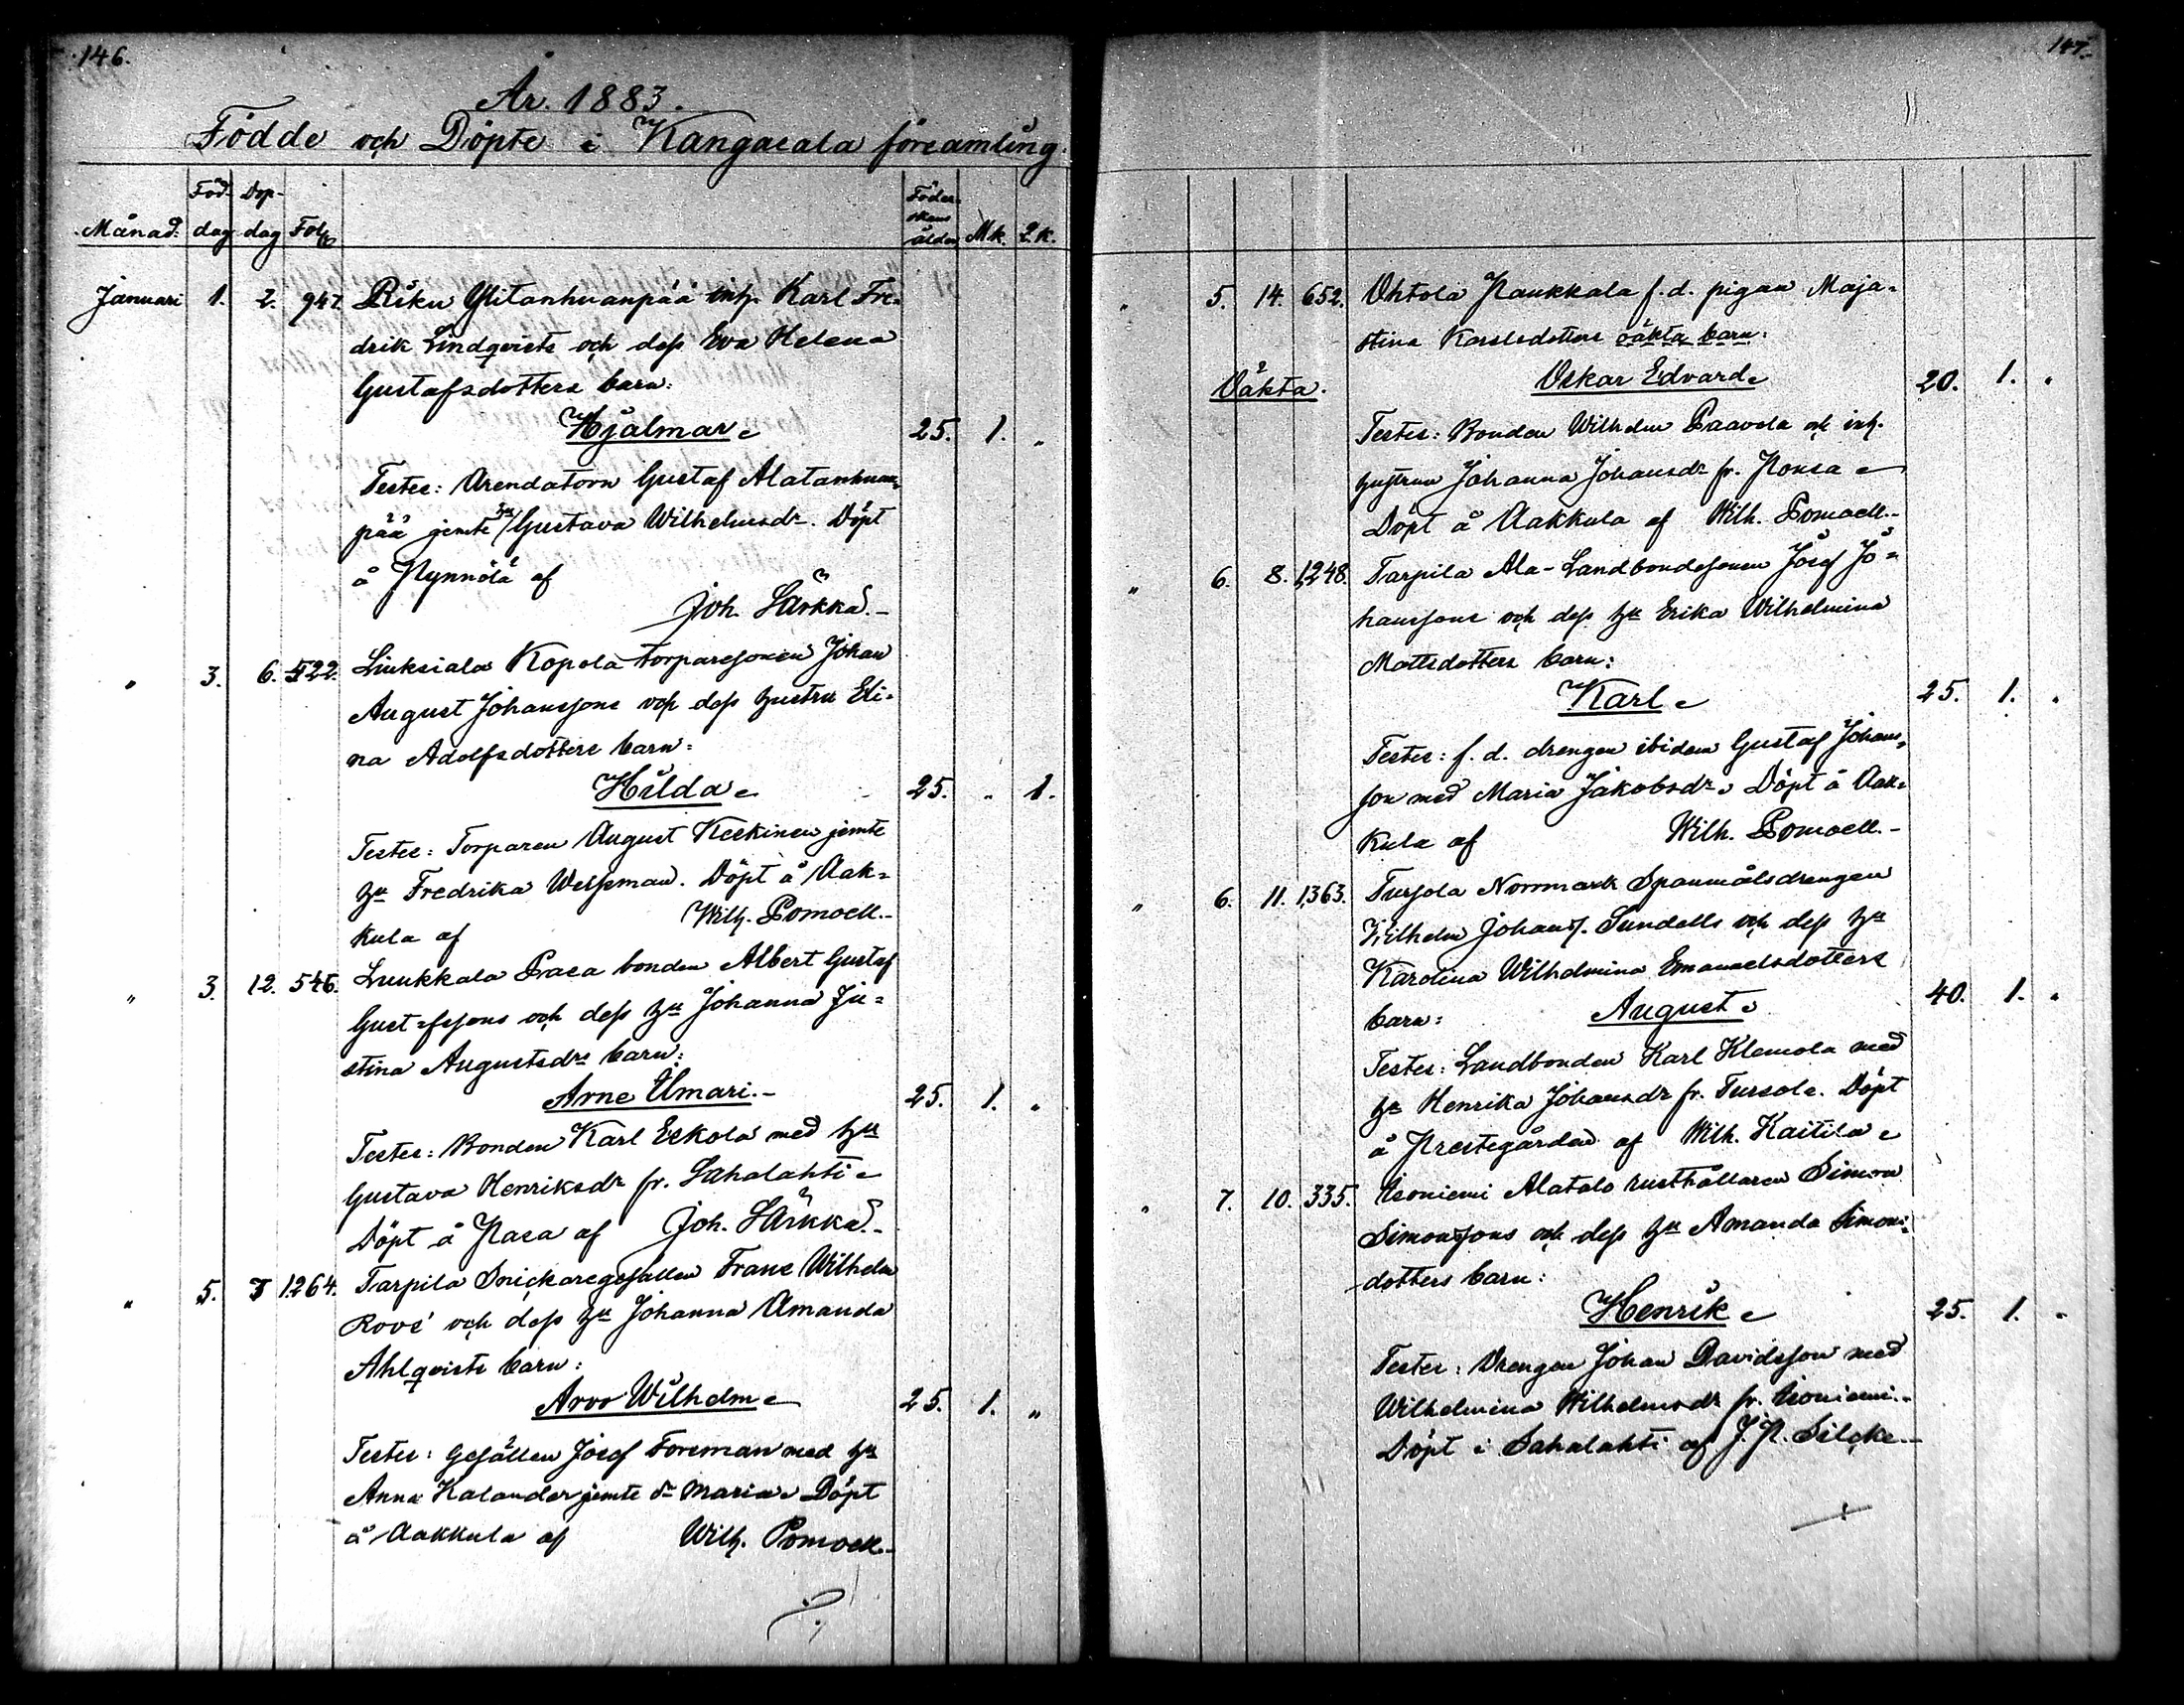 146.
År. 1883.
Födde och Döpte i Kangasala församling.
Månad. Föd-dag Dop-dag Fol. Föderskans ålder Mk. Qk.
Januari 1. 2. 947. Riku Ylitanhuanpää inh. Karl Fre-
drik Lindqvists och dess Eva Helena
Gustafsdotters barn:
Hjalmar 25. 1. "
Testes: Arendatorn Gustaf Alatanhuan-
pää jemte hu Gustava Wilhelmsdr. Döpt
å Pynnölä af
Joh. Särkkä.-
" 3. 6. 522. Liuksiala Kopola torparesonen Johan
August Johanssons och dess hustru Eli-
na Adolfsdotters barn:
Hilda 25. " 1.
Testes: Torparen August Keskinen jemte
hu Fredrika Wessman. Döpt å Aak-
kula af Wilh. Pomoell.-
" 3. 12. 546. Luukkala Pasa bonden Albert Gustaf
Gustafssons och dess hu Johanna Ju-
stina Augustsdrs barn:
Arne Ilmari.- 25. 1. "
Testes: Bonden Karl Eskola med hu
Gustava Henriksdr fr. Sahalahti
Döpt å Pasa af Joh. Särkkä.-
" 5. 7 1264. Tarpila Snickaregesällen Frans Wilhelm
Rové och dess hu Johanna Amanda
Ahlqvists barn:
Arvo Wilhelm 25. 1. "
Testes: Gesällen Josef Forsman med hu
Anna Kalander jemte dr Maria Döpt
å Aakkula af Wilh. Pomoell.-
147.
" 5. 14. 652. Ohtola Paukkala f.d. pigan Maja-
stina Karlsdotters oäkta barn:
Oäkta. Oskar Edvard 20. 1. "
Testes: Bonden Wilhelm Paavola och inh.
hustrun Johanna Johansdr fr. Ponsa
Döpt å Aakkula af Wilh. Pomoell.-
" 6. 8. 1,248. Tarpila Ala-Landbondesonen Josef Jo-
hanssons och dess hu Erika Wilhelmina
Mattsdotters barn:
Karl 25. 1. "
Testes: f.d. drengen ibidem Gustaf Johans-
son med Maria Jakobsdr. Döpt å Aak-
kula af Wilh. Pomoell.-
" 6. 11. 1,363. Tursola Norrmark Spanmålsdrengen
Wilhelm Johanss. Sundells och dess hu
Karolina Wilhelmina Emanuelsdotters
barn: August 40. 1. "
Testes: Landbonden Karl Klemola med
hu Henrika Johansdr fr. Tursola. Döpt
å Prestegården af Wilh. Kaitila
" 7. 10. 335. Isoniemi Alatalo rusthållaren Simon
Simonssons och dess hu Amanda Simons-
dotters barn:
Henrik 25. 1. "
Testes: Drengen Johan Davidsson med
Wilhelmina Wilhelmsdr fr. Isoniemi.-
Döpt i Sahalahti af J. P. Silcke.-